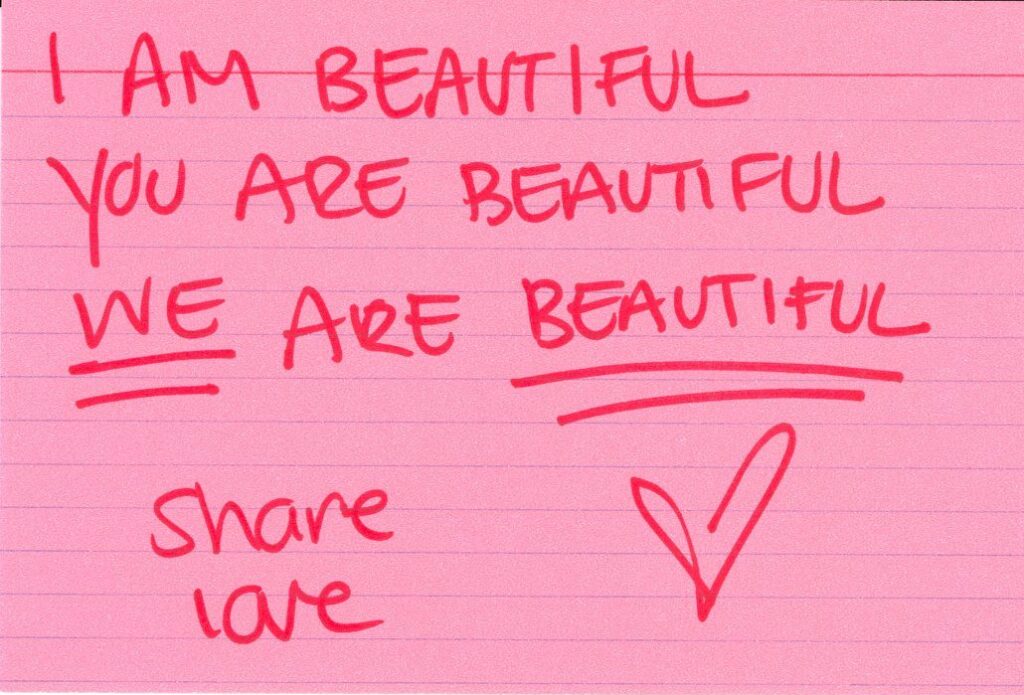 I AM BEAUTIFUL
YOU ARE BEAUTIFUL
WE ARE BEAUTIFUL
share
love